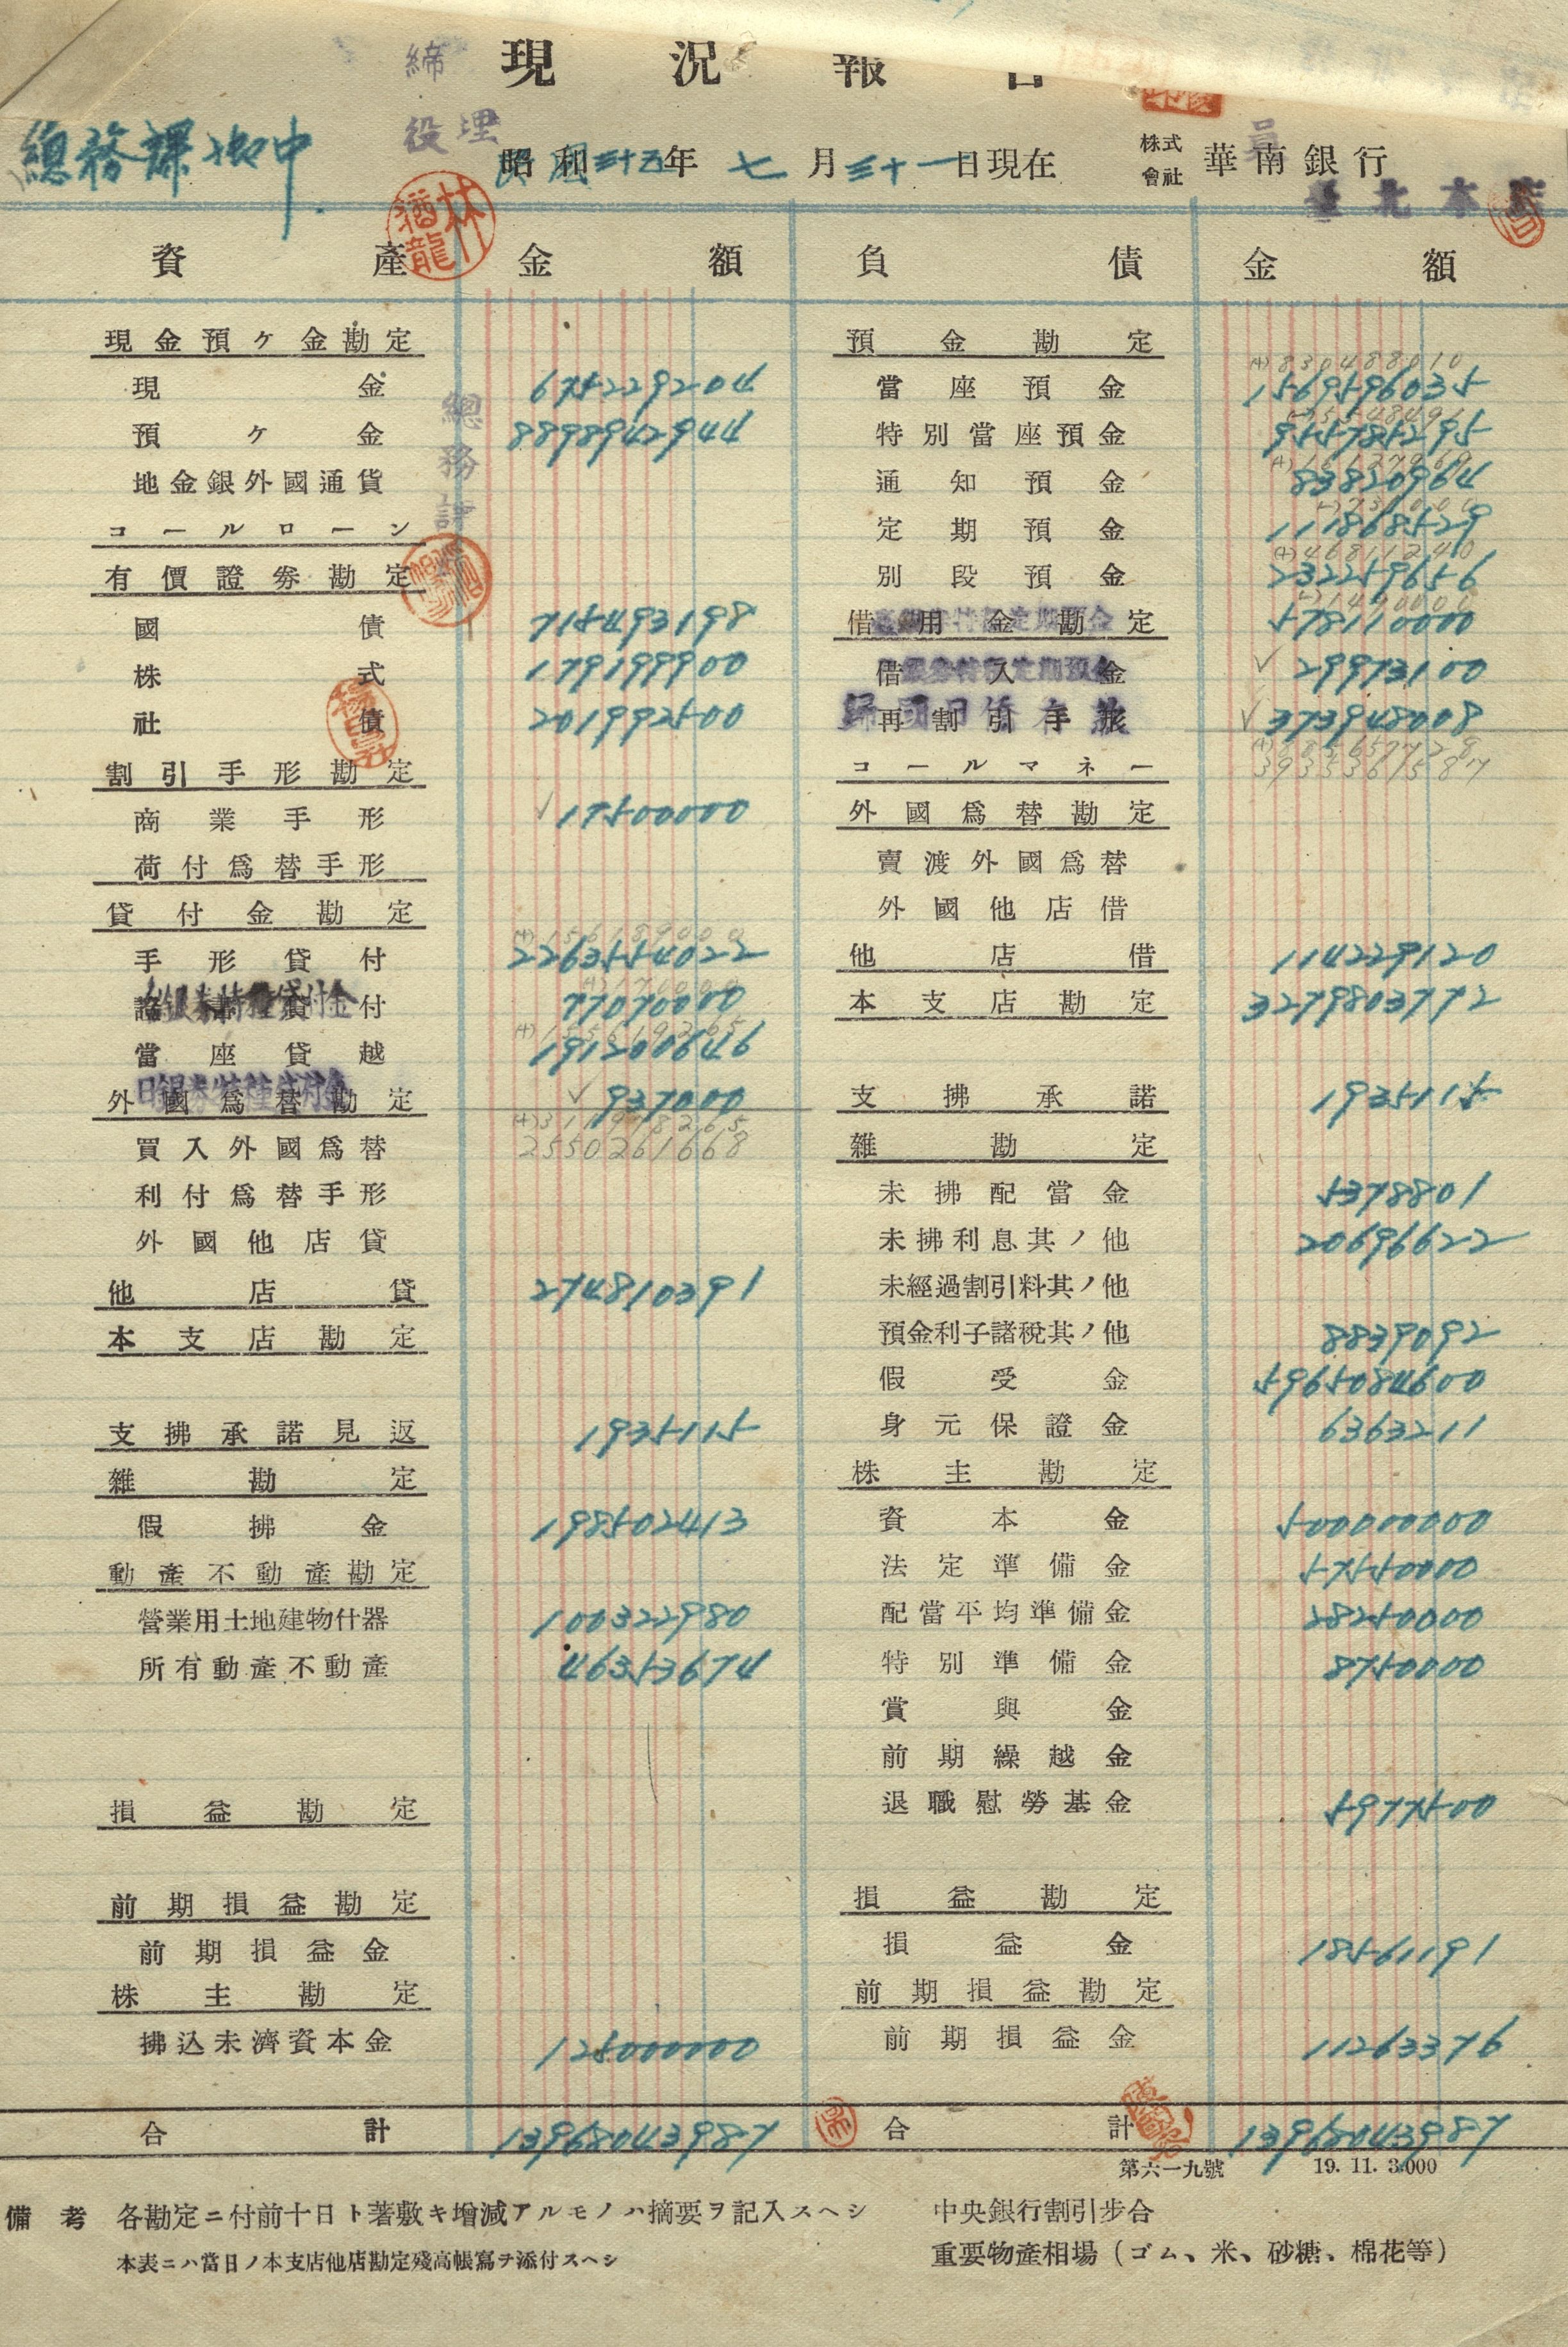 締 現況報告
總務課御中
役 理
民國三十五年七月三十一日現在 株式會社 華南銀行
臺北本店
林猶龍
資產 金額 負債 金額
現金預ケ金勘定 預金勘定
(+) 830488010
現金 6752292204 當座預金 1569596035
預ケ金 8898942944 特別當座預金 9557851295
地金銀外國通貨 通知預金 83820964
コールローン 定期預金 111868529
有價證券勘定 別段預金 232259656
總務
國債 715493198 借用金勘定 578110000
株式 179199900 借入金 29973100
社債 201992500 再割引手形 373948008
歸國日僑存款
割引手形勘定 コールマネー
3935361587
商業手形 17500000 外國爲替勘定
荷付爲替手形 賣渡外國爲替
貸付金勘定 外國他店借
手形貸付 2263554022 他店借 114229120
證書貸付 77070000 本支店勘定 3279803772
當座貸越 191200646
日銀券特種貸付金
外國爲替勘定 937000 支拂承諾 1935115
(+) 311978265
買入外國爲替 2550261668 雜勘定
利付爲替手形 未拂配當金 5378801
外國他店貸 未拂利息其ノ他 20696622
他店貸 274810391 未經過割引料其ノ他
本支店勘定 預金利子諸稅其ノ他 8839092
假受金 5965084600
支拂承諾見返 1935115 身元保證金 6363211
雜勘定 株主勘定
假拂金 198502413 資本金 500000000
動產不動產勘定 法定準備金 57550000
營業用土地建物什器 100322980 配當平均準備金 28250000
所有動產不動產 46353674 特別準備金 8750000
賞與金
前期繰越金
損益勘定 退職慰勞基金 5977500
前期損益勘定 損益勘定
前期損益金 損益金 18561191
株主勘定 前期損益勘定
拂込未濟資本金 125000000 前期損益金 11263376
合計 13968043987 合計 13968043987
第六一九號 19. 11. 3.000
備考 各勘定ニ付前十日ト著敷キ增減アルモノハ摘要ヲ記入スヘシ 中央銀行割引步合
本表ニハ當日ノ本支店他店勘定殘高帳寫ヲ添付スヘシ 重要物產相場（ゴム、米、砂糖、棉花等）